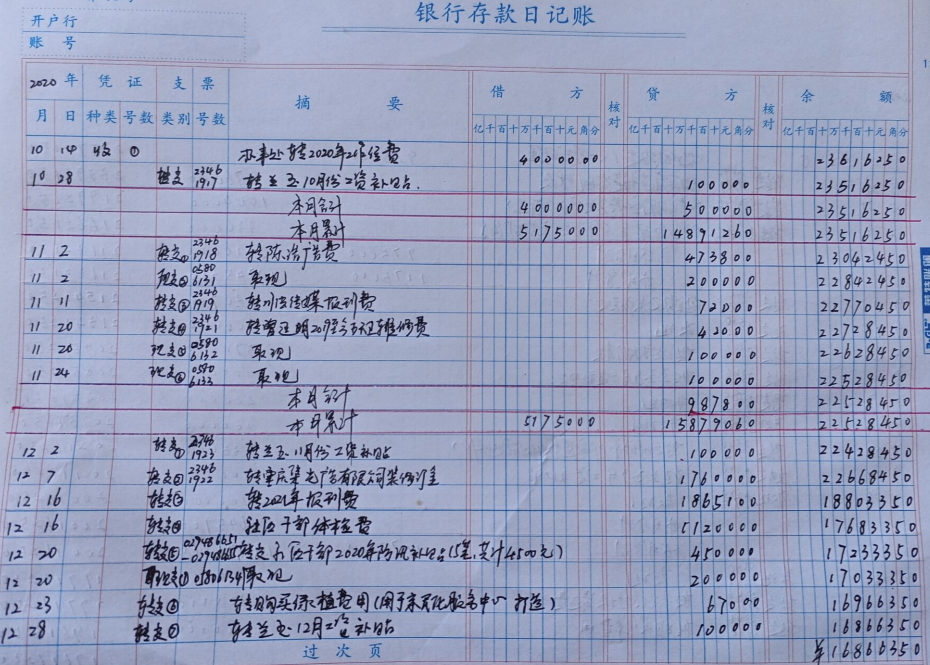 银行存款日记账
开户行
账 号
2020 年 凭 证 支 票 摘 要 借 方 核对 贷 方 核对 余 额
月 日 种类 号数 类别 号数 亿千百十万千百十元角分 亿千百十万千百十元角分 亿千百十万千百十元角分
10 14 收 ① 办事处转2020年工作经费 4000000 23616250
10 28 转支 2346 1917 转兰玉10月份工资补贴. 100000 23516250
本月合计 4000000 500000 23516250
本月累计 5175000 14891260 23516250
11 2 转支① 2346 1918 转陈 广告费 473800 23042450
11 2 现支② 0580 6131 取现 200000 22842450
11 11 转支③ 2346 1919 转川 传媒报刊费 72000 22770450
11 20 转支④ 2346 1921 转曾 明209 维修费 42000 22728450
11 20 现支⑤ 0580 6132 取现 100000 22628450
11 24 现支⑥ 0580 6133 取现 100000 22528450
本月合计 987800 22528450
本月累计 5175000 15879060 22528450
12 2 转支① 2346 1923 转兰玉11月份工资补贴 100000 22428450
12 7 转支② 2346 1922 转重庆集 广告有限公司装饰 1760000 22668450
12 16 转支③ 转2021年报刊费 1865100 18803350
12 16 转支④ 社区干部体检费 1120000 17683350
12 20 转支⑤ 02948651 转支 区干部2020年 补贴(5 共计4500元) 450000 17233350
12 20 现支 05806134 取现 200000 17033350
12 23 转支⑥ 转购买绿植费用(用于 服务中心打造) 67000 16966350
12 28 转支⑦ 转兰玉12月工资补贴 100000 16866350
过 次 页 ¥16866350